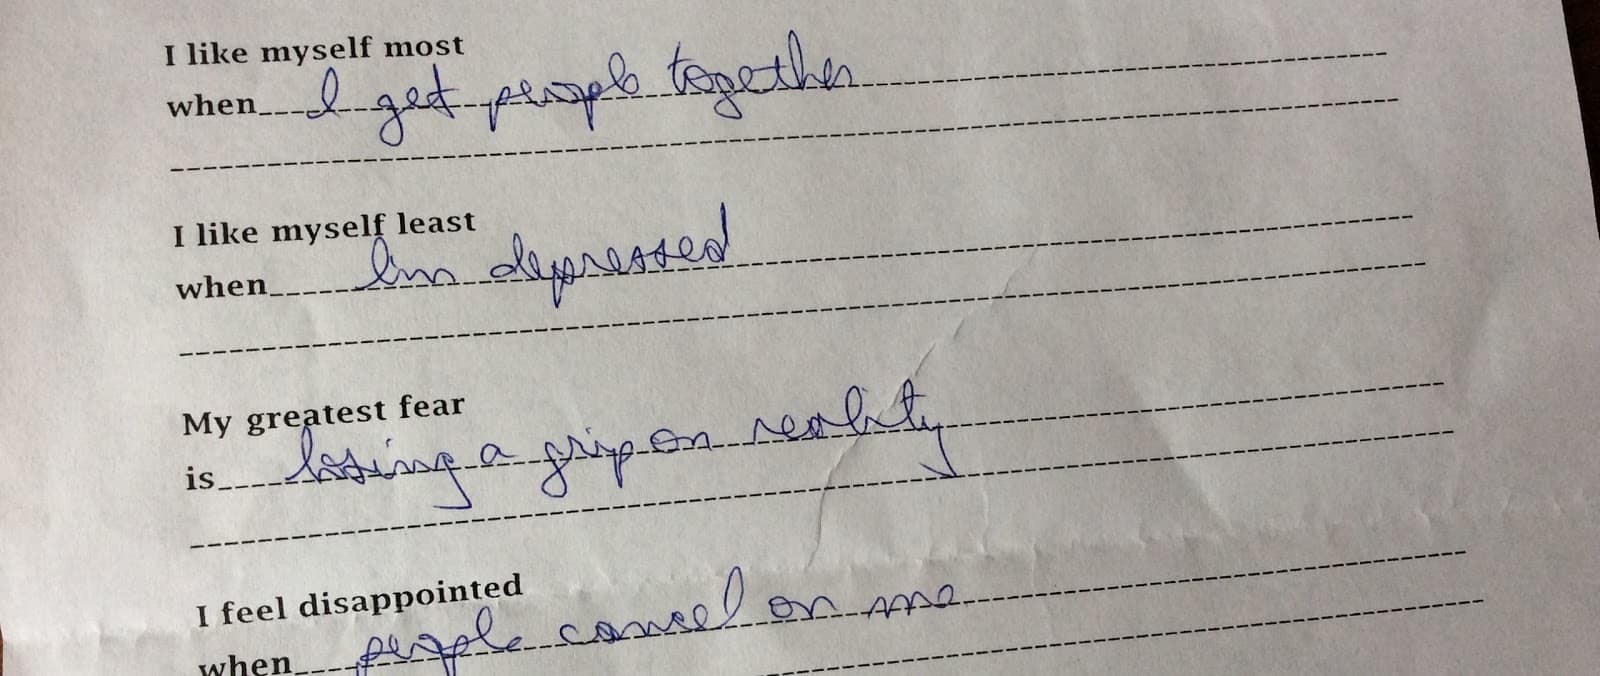 I like myself most
when I get people together
I like myself least
when I'm depressed
My greatest fear
is losing a grip on reality
I feel disappointed
when people cancel on me